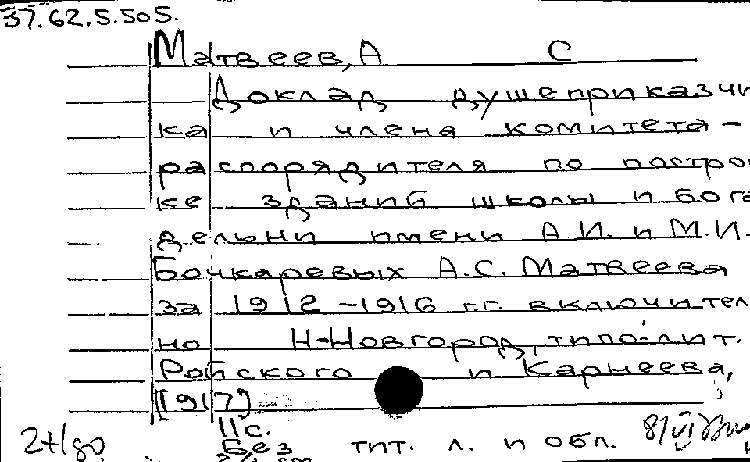 37.62.5.505.
Матвеев, А С
Доклад душеприказчи
ка и члена комитета-
распорядителя по построй
ке зданий школы и бога
дельни имени А.И. и М.И.
Бочкаревых А.С. Матвеева
за 1912-1916 г.г. включител
но Н-Новгород, типо-лит.
Ройского и Карнеева,
[1917]
11 с.
Без тит. л. и обл.